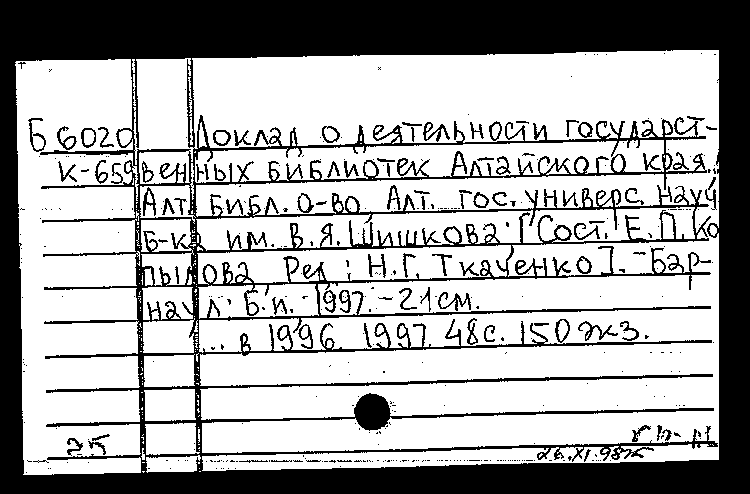 Б 6020 Доклад о деятельности государст-
К-659 венных библиотек Алтайского края...
Алт. библ. о-во. Алт. гос. универс. науч
б-ка им. В.Я. Шишкова; [Сост. Е.П. Ко
пылова, Ред.: Н.Г. Ткаченко]. - Бар-
наул: Б.и. 1997. - 21см.
... в 1996. 1997. 48с. 150 экз.
26.XI.98